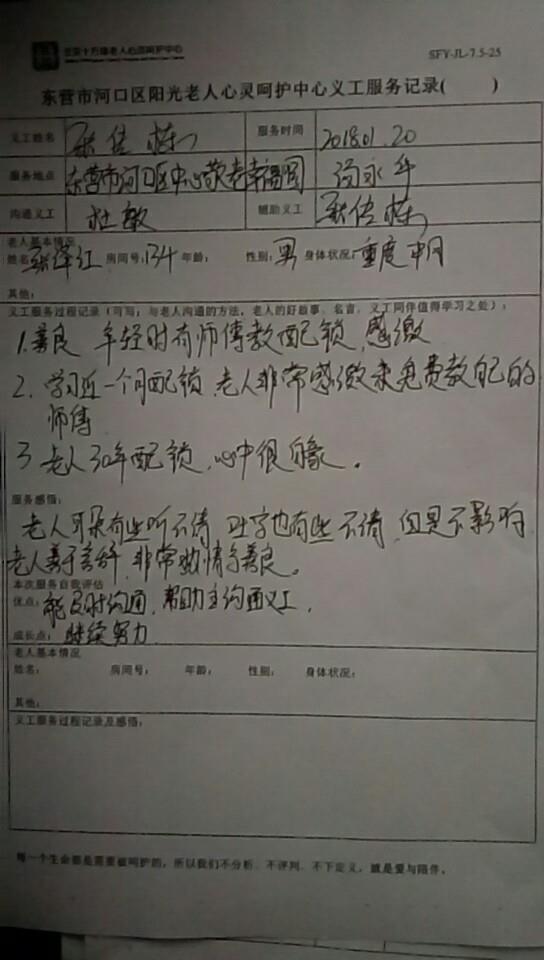 北京十方缘老人心灵呵护中心
SFY-JL-7.5-25
东营市河口区阳光老人心灵呵护中心义工服务记录( )
义工姓名 耿佳栋 服务时间 2018.01.20
服务地点 东营市河口区中心敬老幸福园
沟通义工 杜敏 辅助义工 耿佳栋
老人基本情况
姓名: 房间号:134 年龄: 性别:男 身体状况:重度
其他:
义工服务过程记录(可写:与老人沟通的方法、老人的好故事、名言、义工同伴值得学习之处):
1.善良 年轻时有师傅教配锁,感激
2.学习近一个月配锁,老人非常感激来免费教自己的
师傅
3 老人30年配锁,心中很自豪。
服务感悟:
老人耳朵有些听不清,吐字也有些不清,但是不影响
老人善于言辞,非常热情与善良。
本次服务自我评估
优点:能及时沟通,帮助主沟通义工,
成长点:继续努力
老人基本情况
姓名: 房间号: 年龄: 性别: 身体状况:
其他:
义工服务过程记录及感悟:
每一个生命都是需要被呵护的,所以我们不分析、不评判、不下定义,就是爱与陪伴。